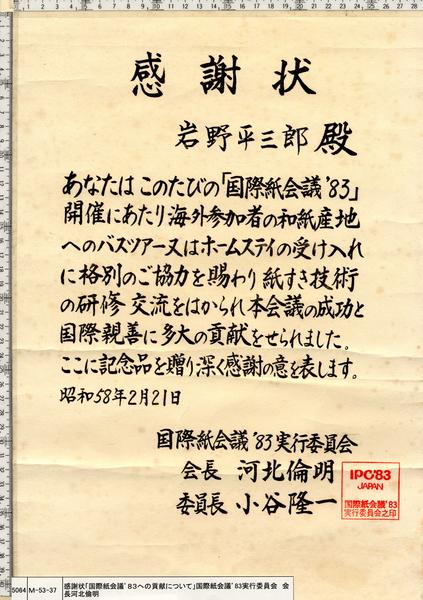 感謝状
岩野平三郎殿
あなたはこのたびの「国際紙会議'83」
開催にあたり海外参加者の和紙産地
へのバスツアー又はホームステイの受け入れ
に格別のご協力を賜わり紙すき技術
の研修交流をはかられ本会議の成功と
国際親善に多大の貢献をせられました。
ここに記念品を贈り深く感謝の意を表します。
昭和58年2月21日
国際紙会議'83実行委員会
会長 河北倫明
委員長 小谷隆一
IPC'83
JAPAN
国際紙会議'83
実行委員会之印
5064 M-53-37 感謝状「国際紙会議'83への貢献について」国際紙会議'83実行委員会 会
長河北倫明